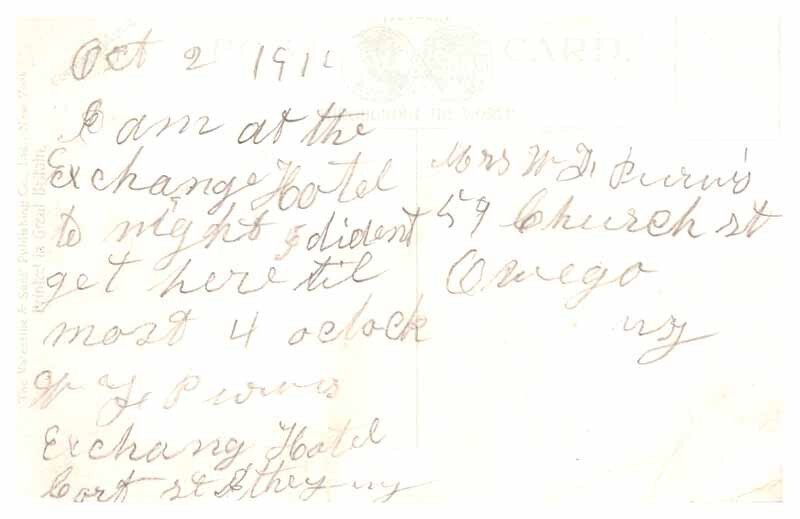 POST CARD.
The Valentine & Sons' Publishing Co., Ltd., New York
Printed in Great Britain.
Oct 2 191
I am at the
Exchange Hotel
to night I dident
get here til
most 4 oclock
W F Purvis
Exchang Hotel
Cort st
ny
Mrs W F Purvis
59 Church st
Owego
ny